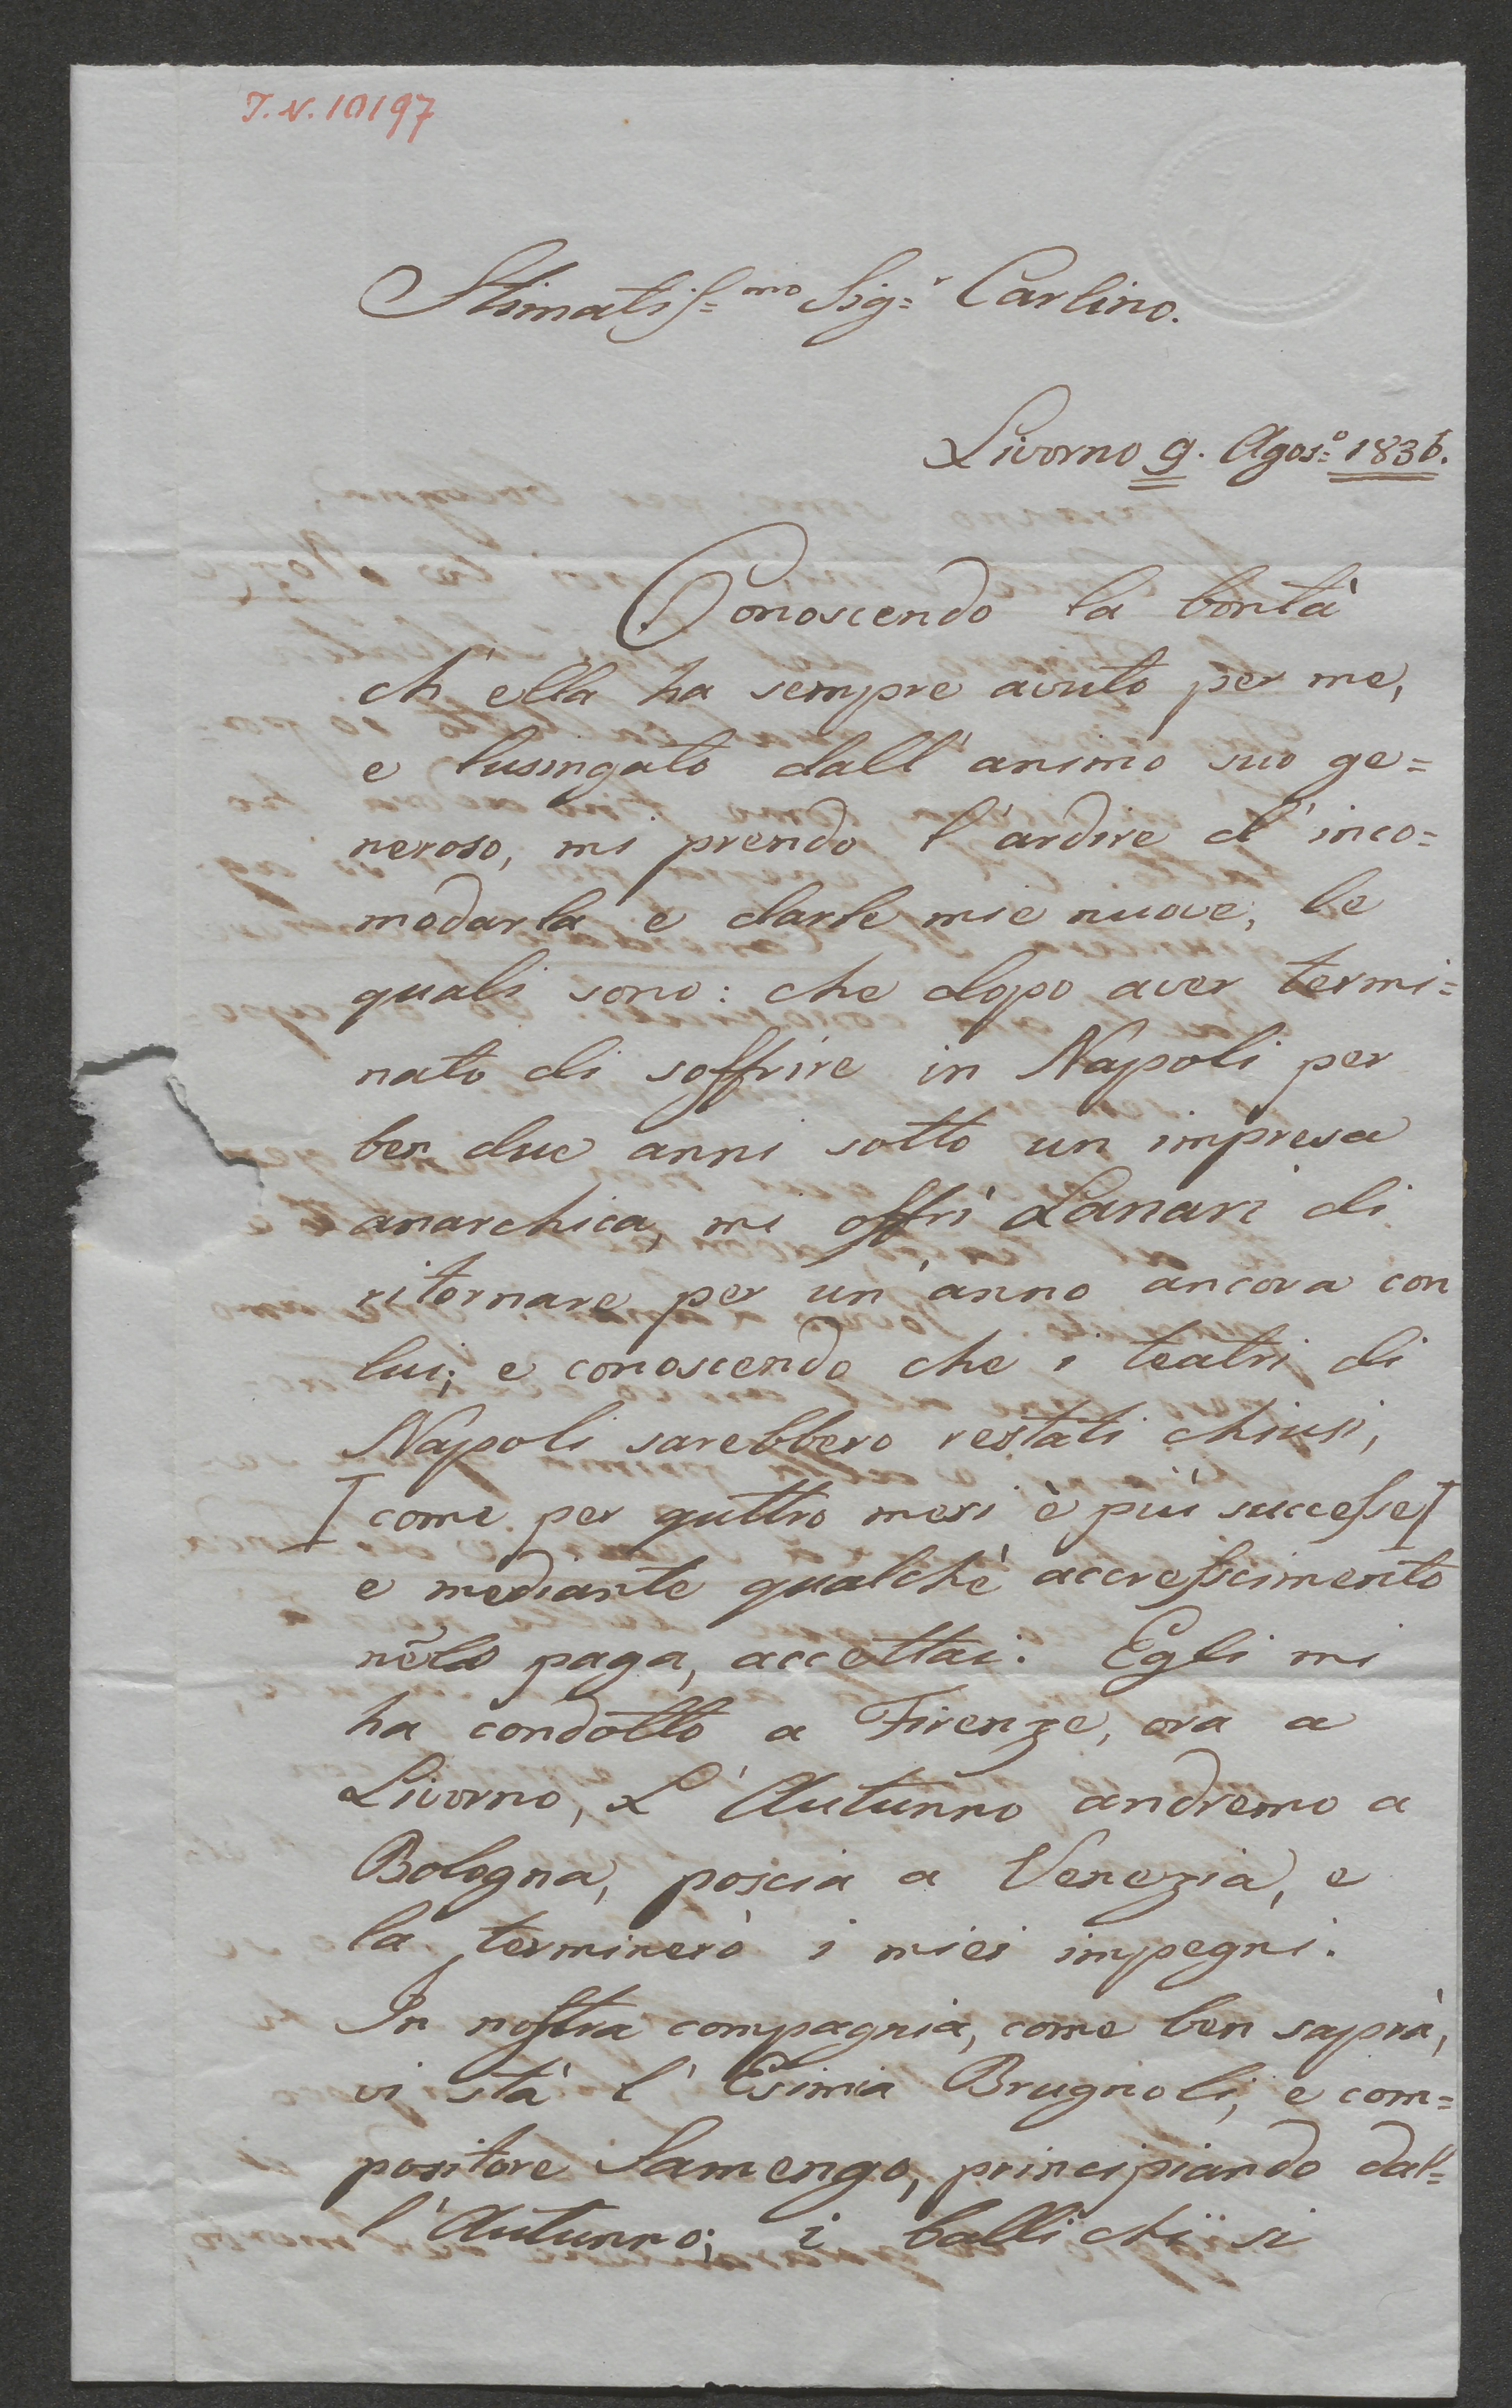 I. N. 10197
Stimatiss=mo Sig=r Carlino.
Livorno 9. Agos=o 1836.
Conoscendo la bontà
ch'ella ha sempre avuto per me,
e lusingato dall'animo suo ge=
neroso, mi prendo l'ardire d'inco=
modarla e darle mie nuove, le
quali sono: che dopo aver termi=
nato di soffrire in Napoli per
ben due anni sotto un impresa
anarchica, mi offrì Lanari di
ritornare per un'anno ancora con
lui; e conoscendo che i teatri di
Napoli sarebbero restati chiusi,
[come per quttro mesi è più successe]
e mediante qualchè accresscimento
nela paga, accettai. Egli mi
ha condotto a Firenze, ora a
Livorno, L'Autunno andremo a
Bologna, poscia a Venezia, e
la terminerò i miei impegni.
In nostra compagnia, come ben saprà,
vi stà l'Esimia Brugnoli, e com=
positore Samengo, principiando dal=
l'Autunno; i balli chi si